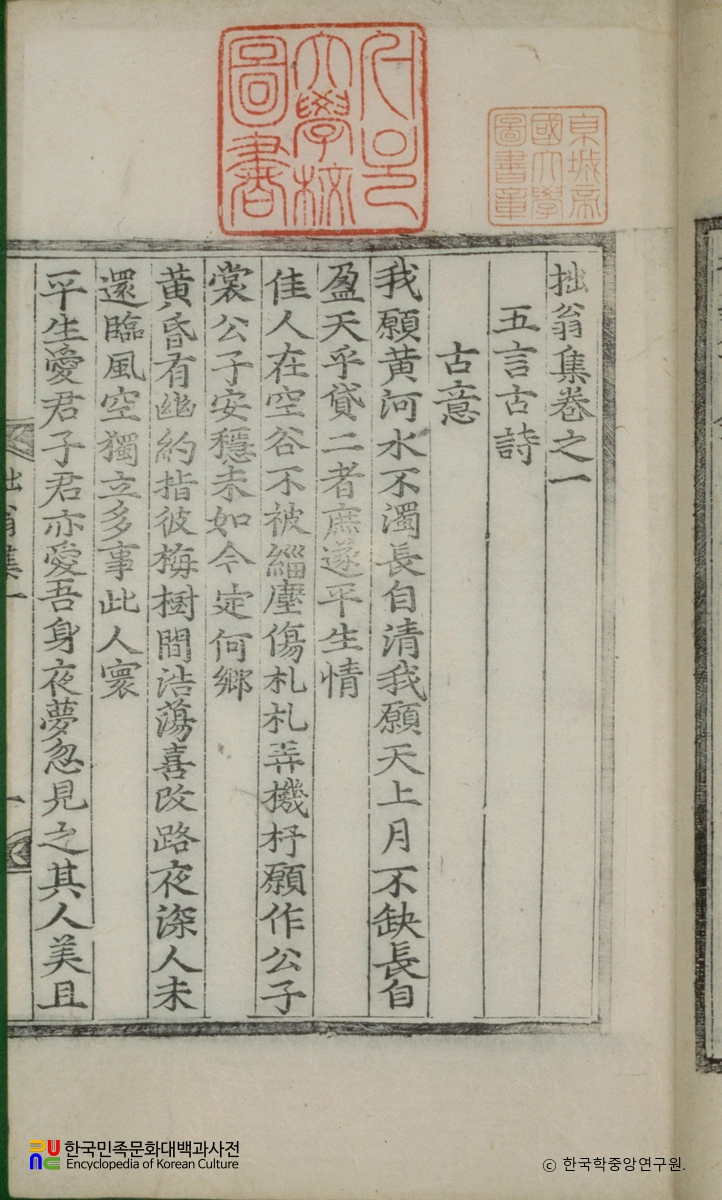 拙翁集卷之一
五言古詩
古意
我願黃河水不濁長自清我願天上月不缺長自
盈天乎貸二者庶遂平生情
佳人在空谷不被緇塵傷札札弄機杼願作公子
裳公子安穩未如今定何鄉
黃昏有幽約指彼梅樹間浩蕩喜改路夜深人未
還臨風空獨立多事此人寰
平生愛君子君亦愛吾身夜夢忽見之其人美且
拙翁集一
一
大學校
圖書
京城帝
國大學
圖書章
한국민족문화대백과사전
Encyclopedia of Korean Culture
ⓒ 한국학중앙연구원.